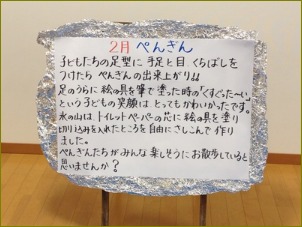 2月 ぺんぎん
子どもたちの足型に 手足と目 くちばしを
つけたら ぺんぎんの出来上がり!!
足のうらに 絵の具を筆で塗った時の「くすぐった〜い」
という子どもの笑顔は とってもかわいかったです。
氷の山は、トイレットペーパーの芯に 絵の具を塗り
切り込みを入れたところを自由に さしこんで 作り
ました。
ぺんぎんたちが みんな 楽しそうに お散歩していると
思いませんか?